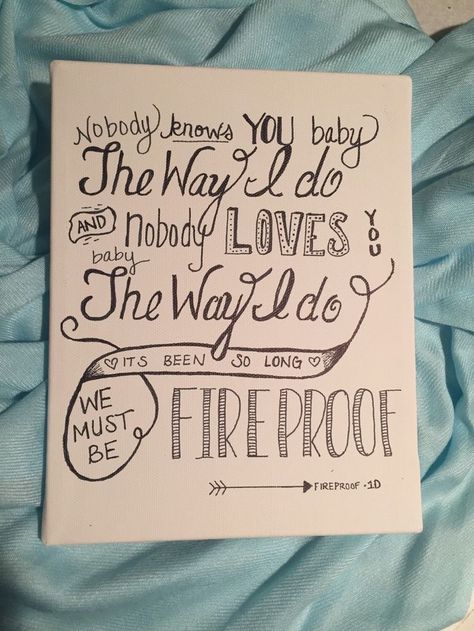 Nobody knows YOU baby
The Way I do
AND Nobody LOVES YOU
baby
The Way I do
♡ ITS BEEN SO LONG ♡
WE
MUST
BE
FIREPROOF
FIREPROOF • 1D